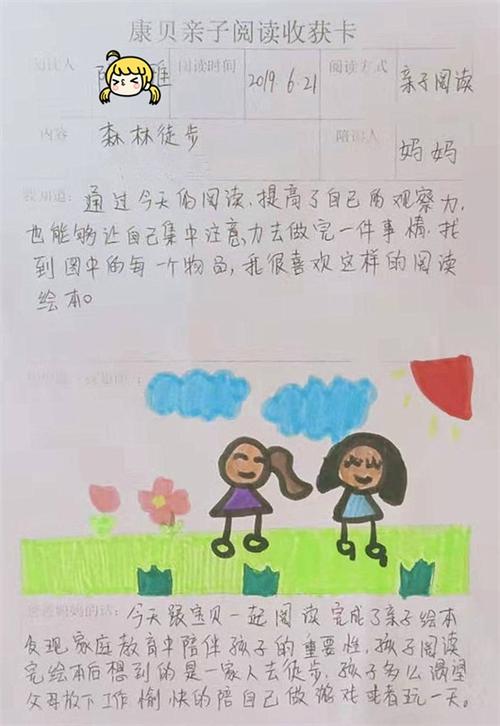 康贝亲子阅读收获卡
阅读人 雅 阅读时间 2019.6.21 阅读方式 亲子阅读
内容 森林徒步 陪读人 妈妈
我知道：通过今天的阅读，提高了自己的观察力，
也能够让自己集中注意力去做完一件事情.找
到图中的每一个物品，我很喜欢这样的阅读
绘本。
爸爸妈妈的话：今天跟宝贝一起阅读完成了亲子绘本
发现家庭教育中陪伴孩子的重要性，孩子阅读
完绘本后想到的是一家人去徒步，孩子多么渴望
父母放下工作愉快的陪自己做游戏或者玩一天。